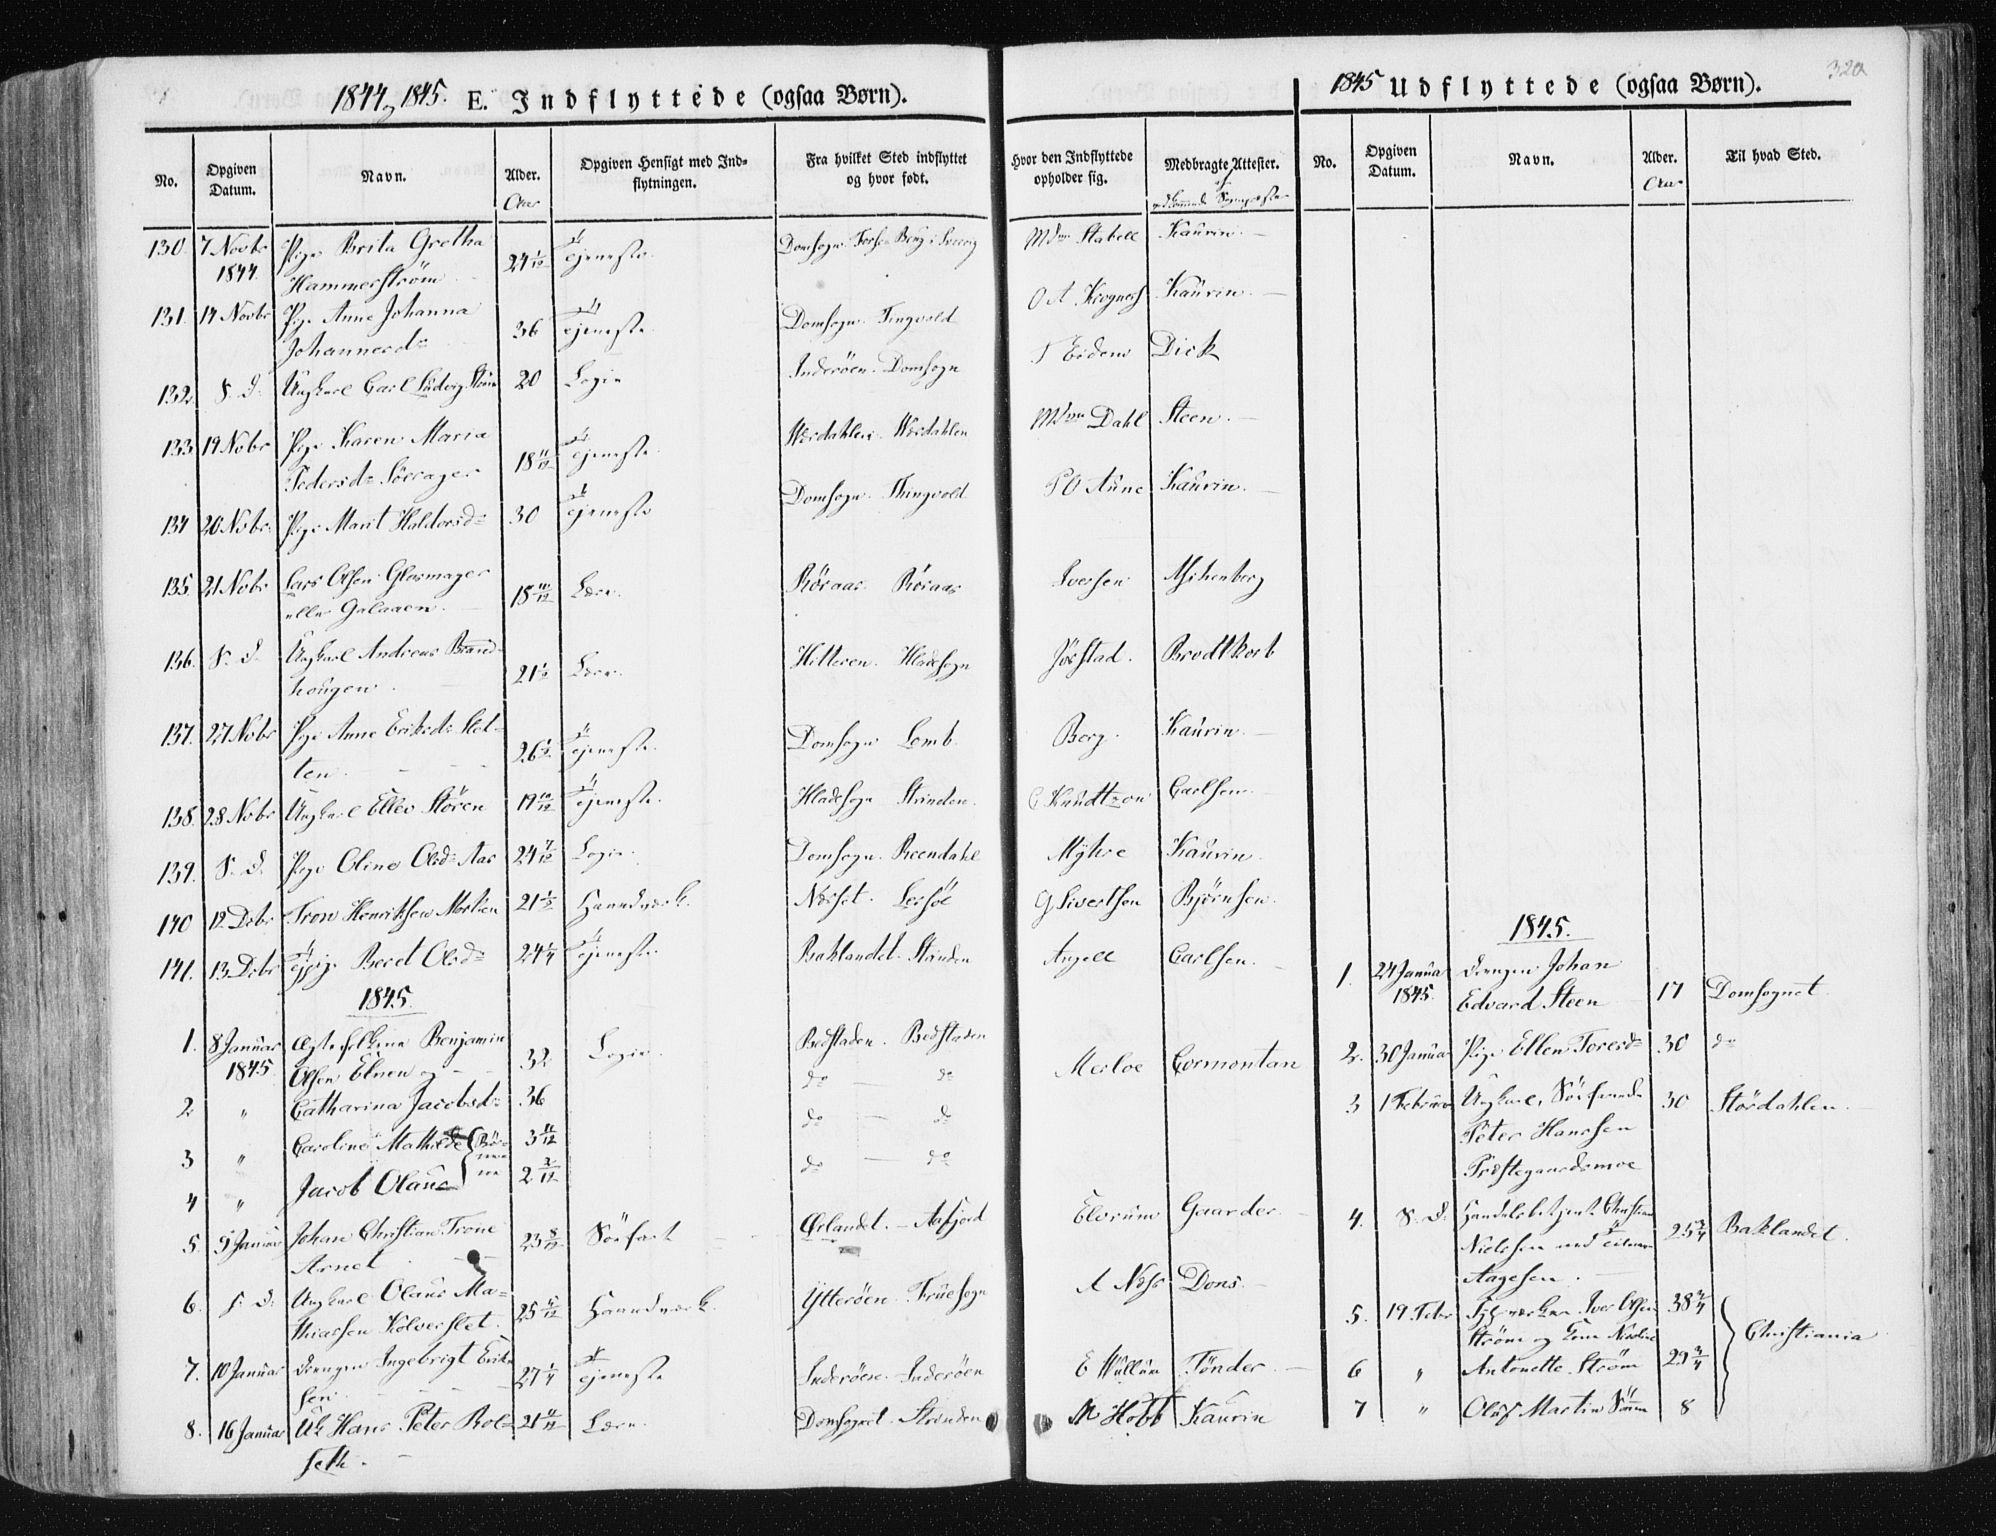 320
1844, 1845. E. Indflyttede (ogsaa Børn).
No. Opgiven Datum. Navn. Alder. Aar Opgiven Hensigt med Indflytningen. Fra hvilket Sted indflyttet og hvor født. Hvor den Indflyttede opholder sig. Medbragte Attester.
130. 7 Novbr 1844. Pige Brita Gretha Hammerstrøm 24 1/12 Tjeneste Domsogn Mdm Stabell Kaurin
131. 14 Novbr Pige Anne Johanna Johannesd 36 Tjeneste Domsogn Tingvold O A Krogness Kaurin
132. S. D. Ungkarl Carl Ludvig 20 Logie Inderöen Domsogn Eidem Dick
133. 19 Nobr Pige Karen Maria Pedersd Sörager 18 11/12 Tjeneste Werdahlen Werdahlen Mdm Dahl Steen
134 20 Nobr Pige Marit Haldorsd 30 Tjeneste Domsogn Thingvold P O Aune Kaurin
135. 21 Nobr Lars Olsen Glasmager eller Galaaen 18 10/12 Lære Röraas Röraas Iversen
136. S. D. Ungkarl Andreas Brandhougen 21 1/2 Lære Hitteren Hladesogn Jörstad Brodtkorb
137. 27 Nobr Pige Anne Eriksd Sletten 26 1/2 Tjeneste Domsogn Lomb Berg Kaurin
138. 28 Nobr Ungkarl Ellev Stören 19 10/12 Tjeneste Hladesogn Strinden C Knudtzon Carlsen
139. S. D. Pige Oline Olsd Aas 24 7/12 Logie Domsogn Reendahl Myhre Kaurin
140 12 Debr Tron Henriksen 21 1/2 Haandværk Nesset Lersöe G Sivertsen Björnsen
141. 13 Debr Pige Beret Olsd 24 1/4 Tjeneste Baklandet Strinden Angell Carlsen
1845.
1. 8 Januar 1845 Ægtefolkene Benjamin Olsen Elnen og 32 Logie Bedstaden Bedstaden Merloe Cormontan
2 " Catharina Jacobsd 36 do do
3 " Caroline Mathilde 3 11/12 do do
4 " Jacob Olaus 2 2/12 do do
5. 9 Januar Johan Christian Trone Arnet 23 8/12 Söefart Ørlandet Aafjord Elvrum Gaarder
6. S. D. Ungkarl Olaus Mathiassen Kolverslet 25 5/12 Haandværk Ytteröen Fruesogn A Ness Dons
7. 10 Januar Drengen Ingebrigt Eriksen 27 1/4 Tjeneste Inderöen Inderöen E Wullum Tönder
8. 16 Januar Uk Hans Peter Rolseth 21 11/12 Lære Domsognet Strinden M Hobb Kaurin
1845 Udflyttede (ogsaa Børn).
No. Opgiven Datum. Navn. Alder. Aar Til hvad Sted.
1845.
1. 24 Januar 1845. Drengen Johan Edvard Steen 17 Domsognet
2. 30 Januar Pige Ellen Toresd 30 do
3 1 Februar Ungkarl, Söefarende Peter Hansen Præstegaardsmoe 30 Stördahlen
4. S. D. Handelsbetjent Christian Nielssen Aagesen 25 3/4 Baklandet
5. 19 Febr Iver Olsen Ström og Kone 38 3/4 Christiania
6 " Antonette Ström 29 3/4
7 " Oluf Martin 8